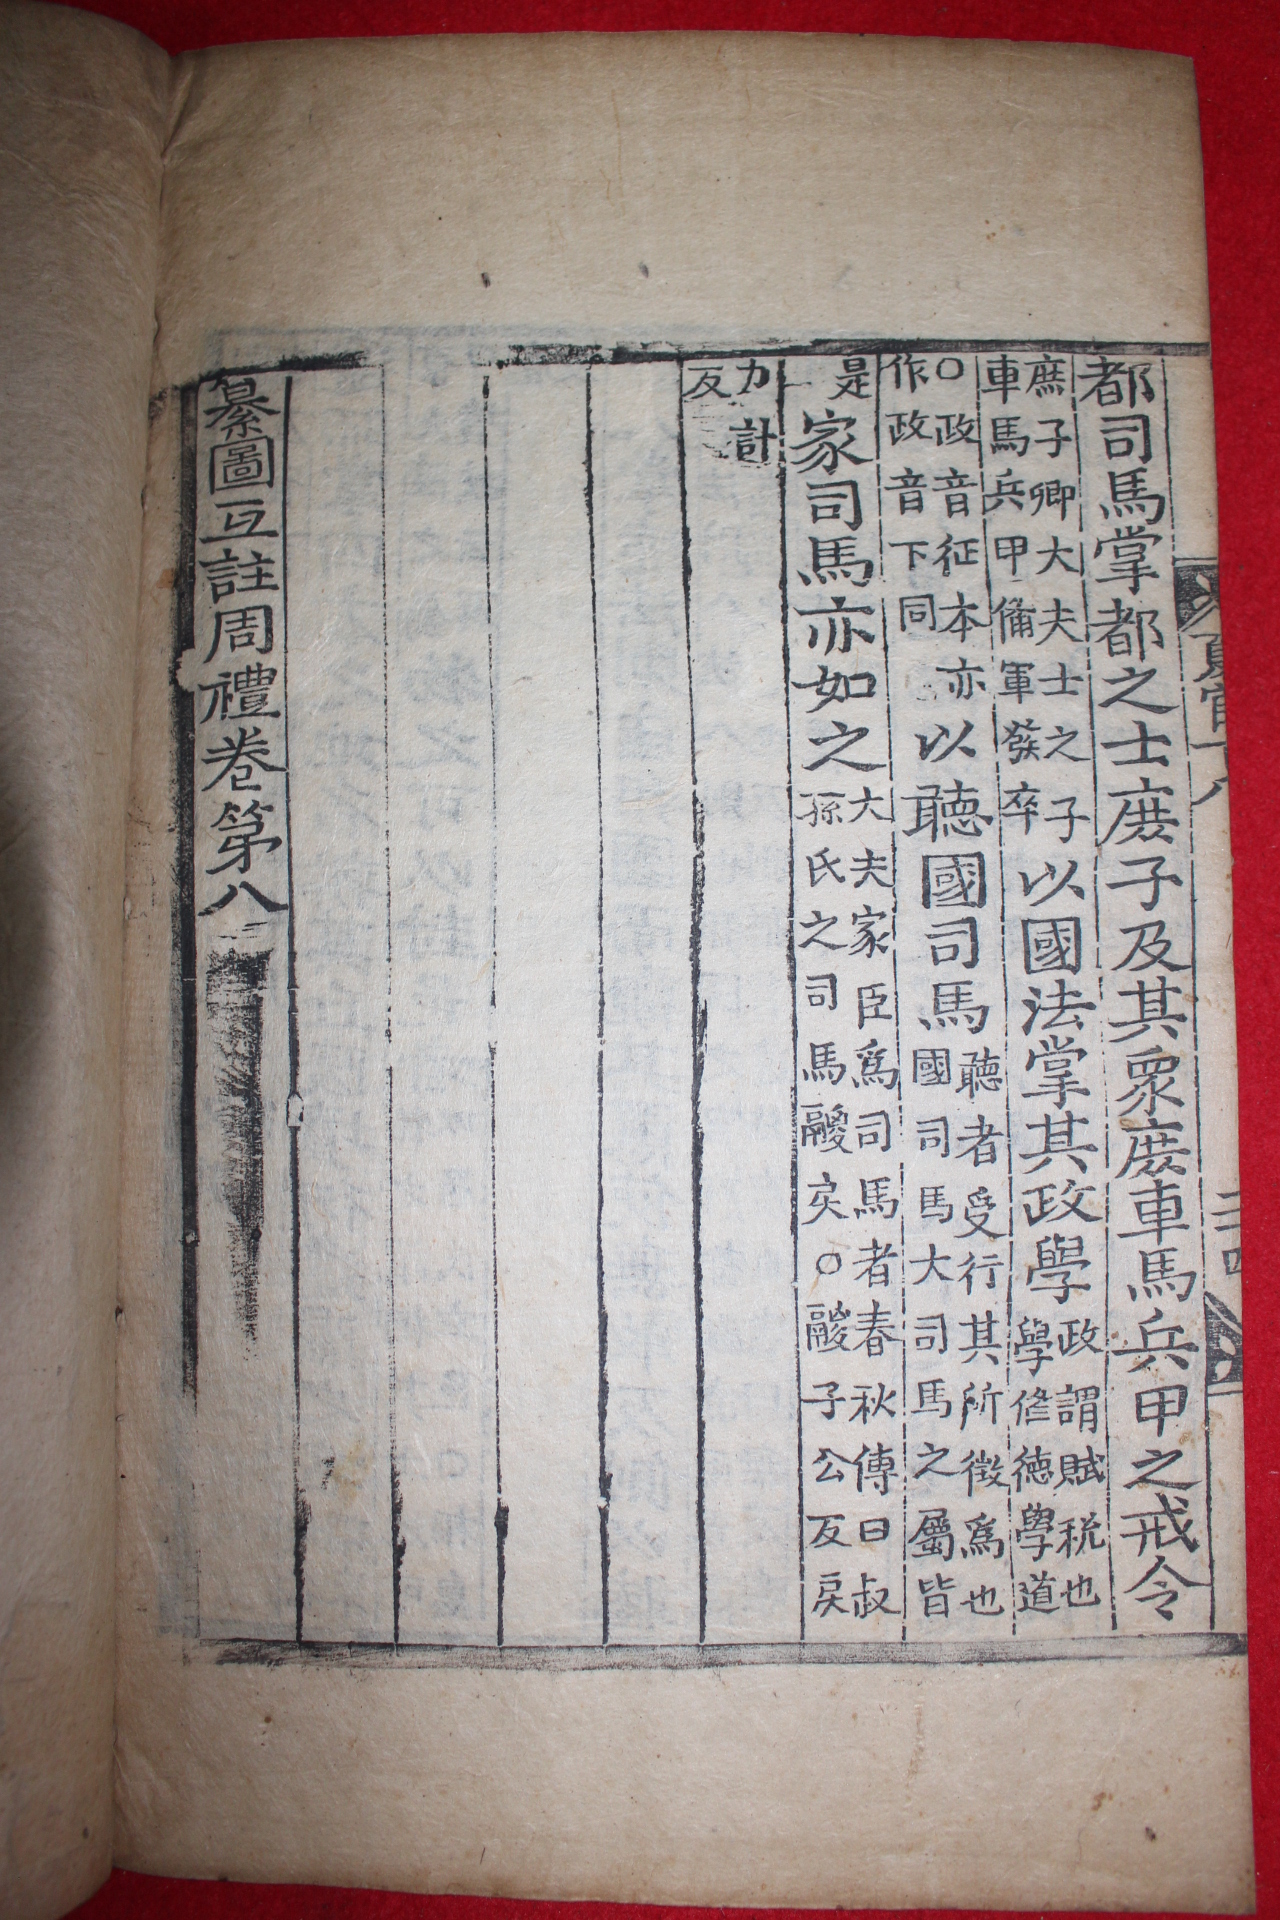 都司馬掌都之士庶子及其衆庶車馬兵甲之戒令
庶子卿大夫士之子車馬兵甲備軍發卒以國法掌其政學政謂賦税也學修德學道
○政音征本亦作政音下同以聽國司馬聽者受行其所徵爲也國司馬大司馬之屬皆
是家司馬亦如之大夫家臣爲司馬者春秋傳曰叔孫氏之司馬鬷戾○鬷子公反戾
力計反
纂圖互註周禮卷第八